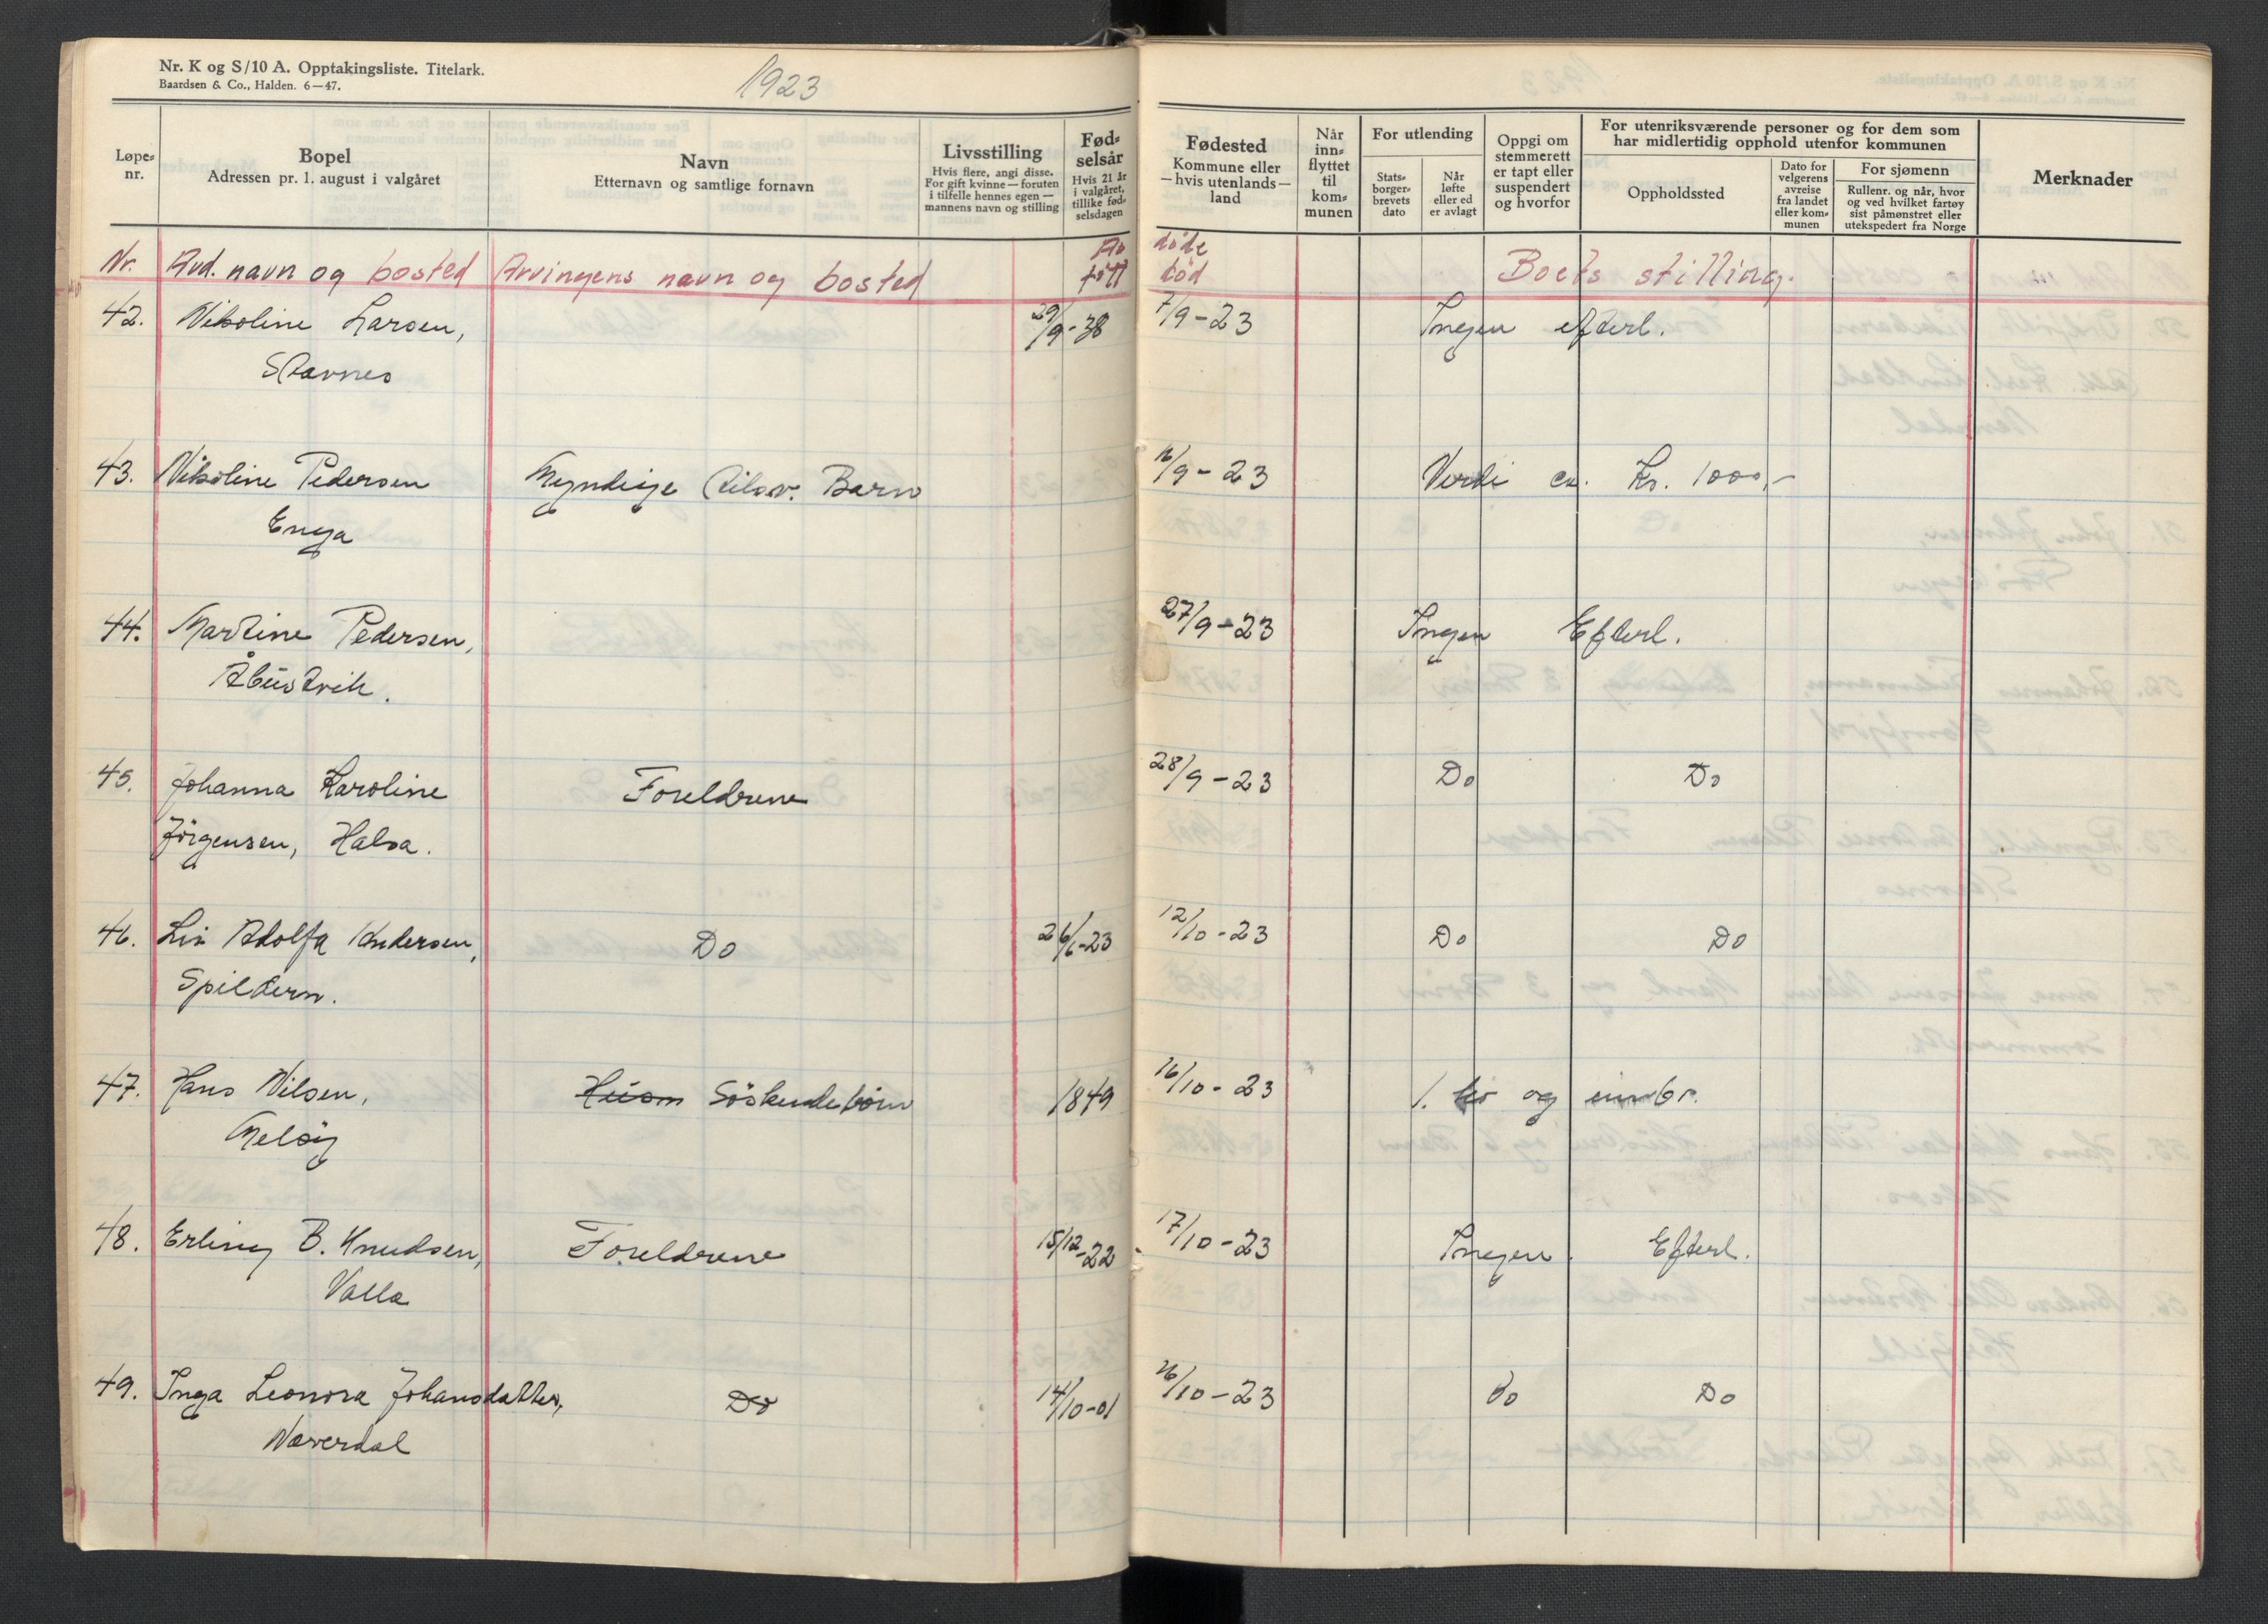 Nr. K og S/10 A. Opptakingsliste. Titelark.
Baardsen & Co., Halden. 6—47.
1923
Løpe-
nr.
Bopel
Adressen pr. 1. august i valgåret
Navn
Etternavn og samtlige fornavn
Livsstilling
Hvis flere, angi disse.
For gift kvinne — foruten
i tilfelle hennes egen —
mannens navn og stilling
Fød-
selsår
Hvis 21 år
i valgåret,
tillike fød-
selsdagen
Fødested
Kommune eller
— hvis utenlands —
land
Når
inn-
flyttet
til
kom-
munen
For utlending
Stats-
borger-
brevets
dato
Når
løfte
eller ed
er avlagt
Oppgi om
stemmerett
er tapt eller
suspendert
og hvorfor
For utenriksværende personer og for dem som
har midlertidig opphold utenfor kommunen
Oppholdssted
Dato for
velgerens
avreise
fra landet
eller kom-
munen
For sjømenn
Rullenr. og når, hvor
og ved hvilket fartøy
sist påmønstret eller
utekspedert fra Norge
Merknader
Nr. Avd. navn og bosted Arvingens navn og bosted født død Boets stilling.
42. Nikoline Larsen, 29/9-38 7/9-23 Ingen efterl.
Stavnes
43. Nikoline Pedersen Myndige Barn 16/9-23 Verdi ca. Kr. 1000,-
Enga
44. Martine Pedersen, 27/9-23 Ingen Efterl.
Åbustvik.
45. Johanna Karoline Foreldrene 28/9-23 Do Do
Jörgensen, Halsa.
46. Liv Adolfa Andersen, Do 26/6-23 12/10-23 Do Do
Spildern.
47. Hans Nilsen, Husm Söskendebörn 1849 16/10-23 og
Melöy
48. Erling B. Knudsen, Foreldrene 15/12-22 17/10-23 Ingen Efterl.
Valla
49. Inga Leonora Johansdatter, Do 14/10-01 26/10-23 Do Do
Naverdal